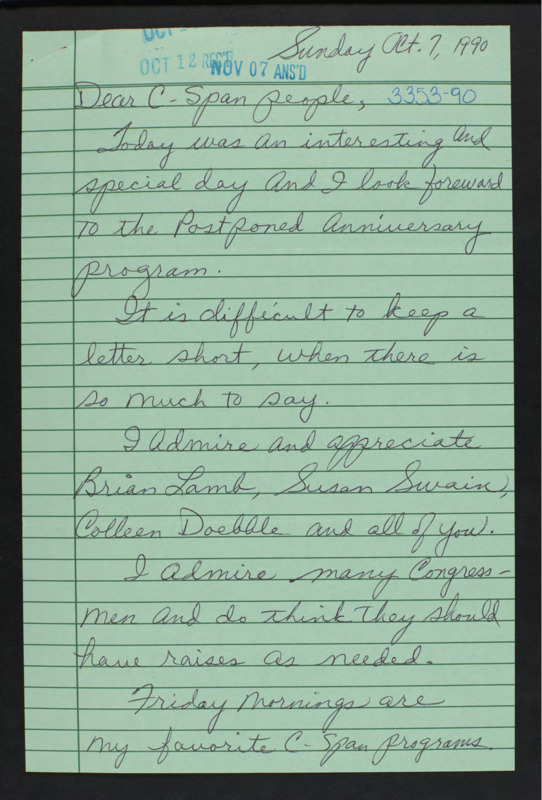 OCT
OCT 12 REC'D
NOV 07 ANS'D
Sunday Oct. 7, 1990
Dear C-Span people, 3353-90
Today was an interesting and
special day and I look foreward
to the Postponed Anniversary
program.
It is difficult to keep a
letter short, when there is
so much to say.
I admire and appreciate
Brian Lamb, Susan Swain,
Colleen Doebble and all of you.
I admire many Congress-
men and do think they should
have raises as needed.
Friday mornings are
my favorite C-Span programs.